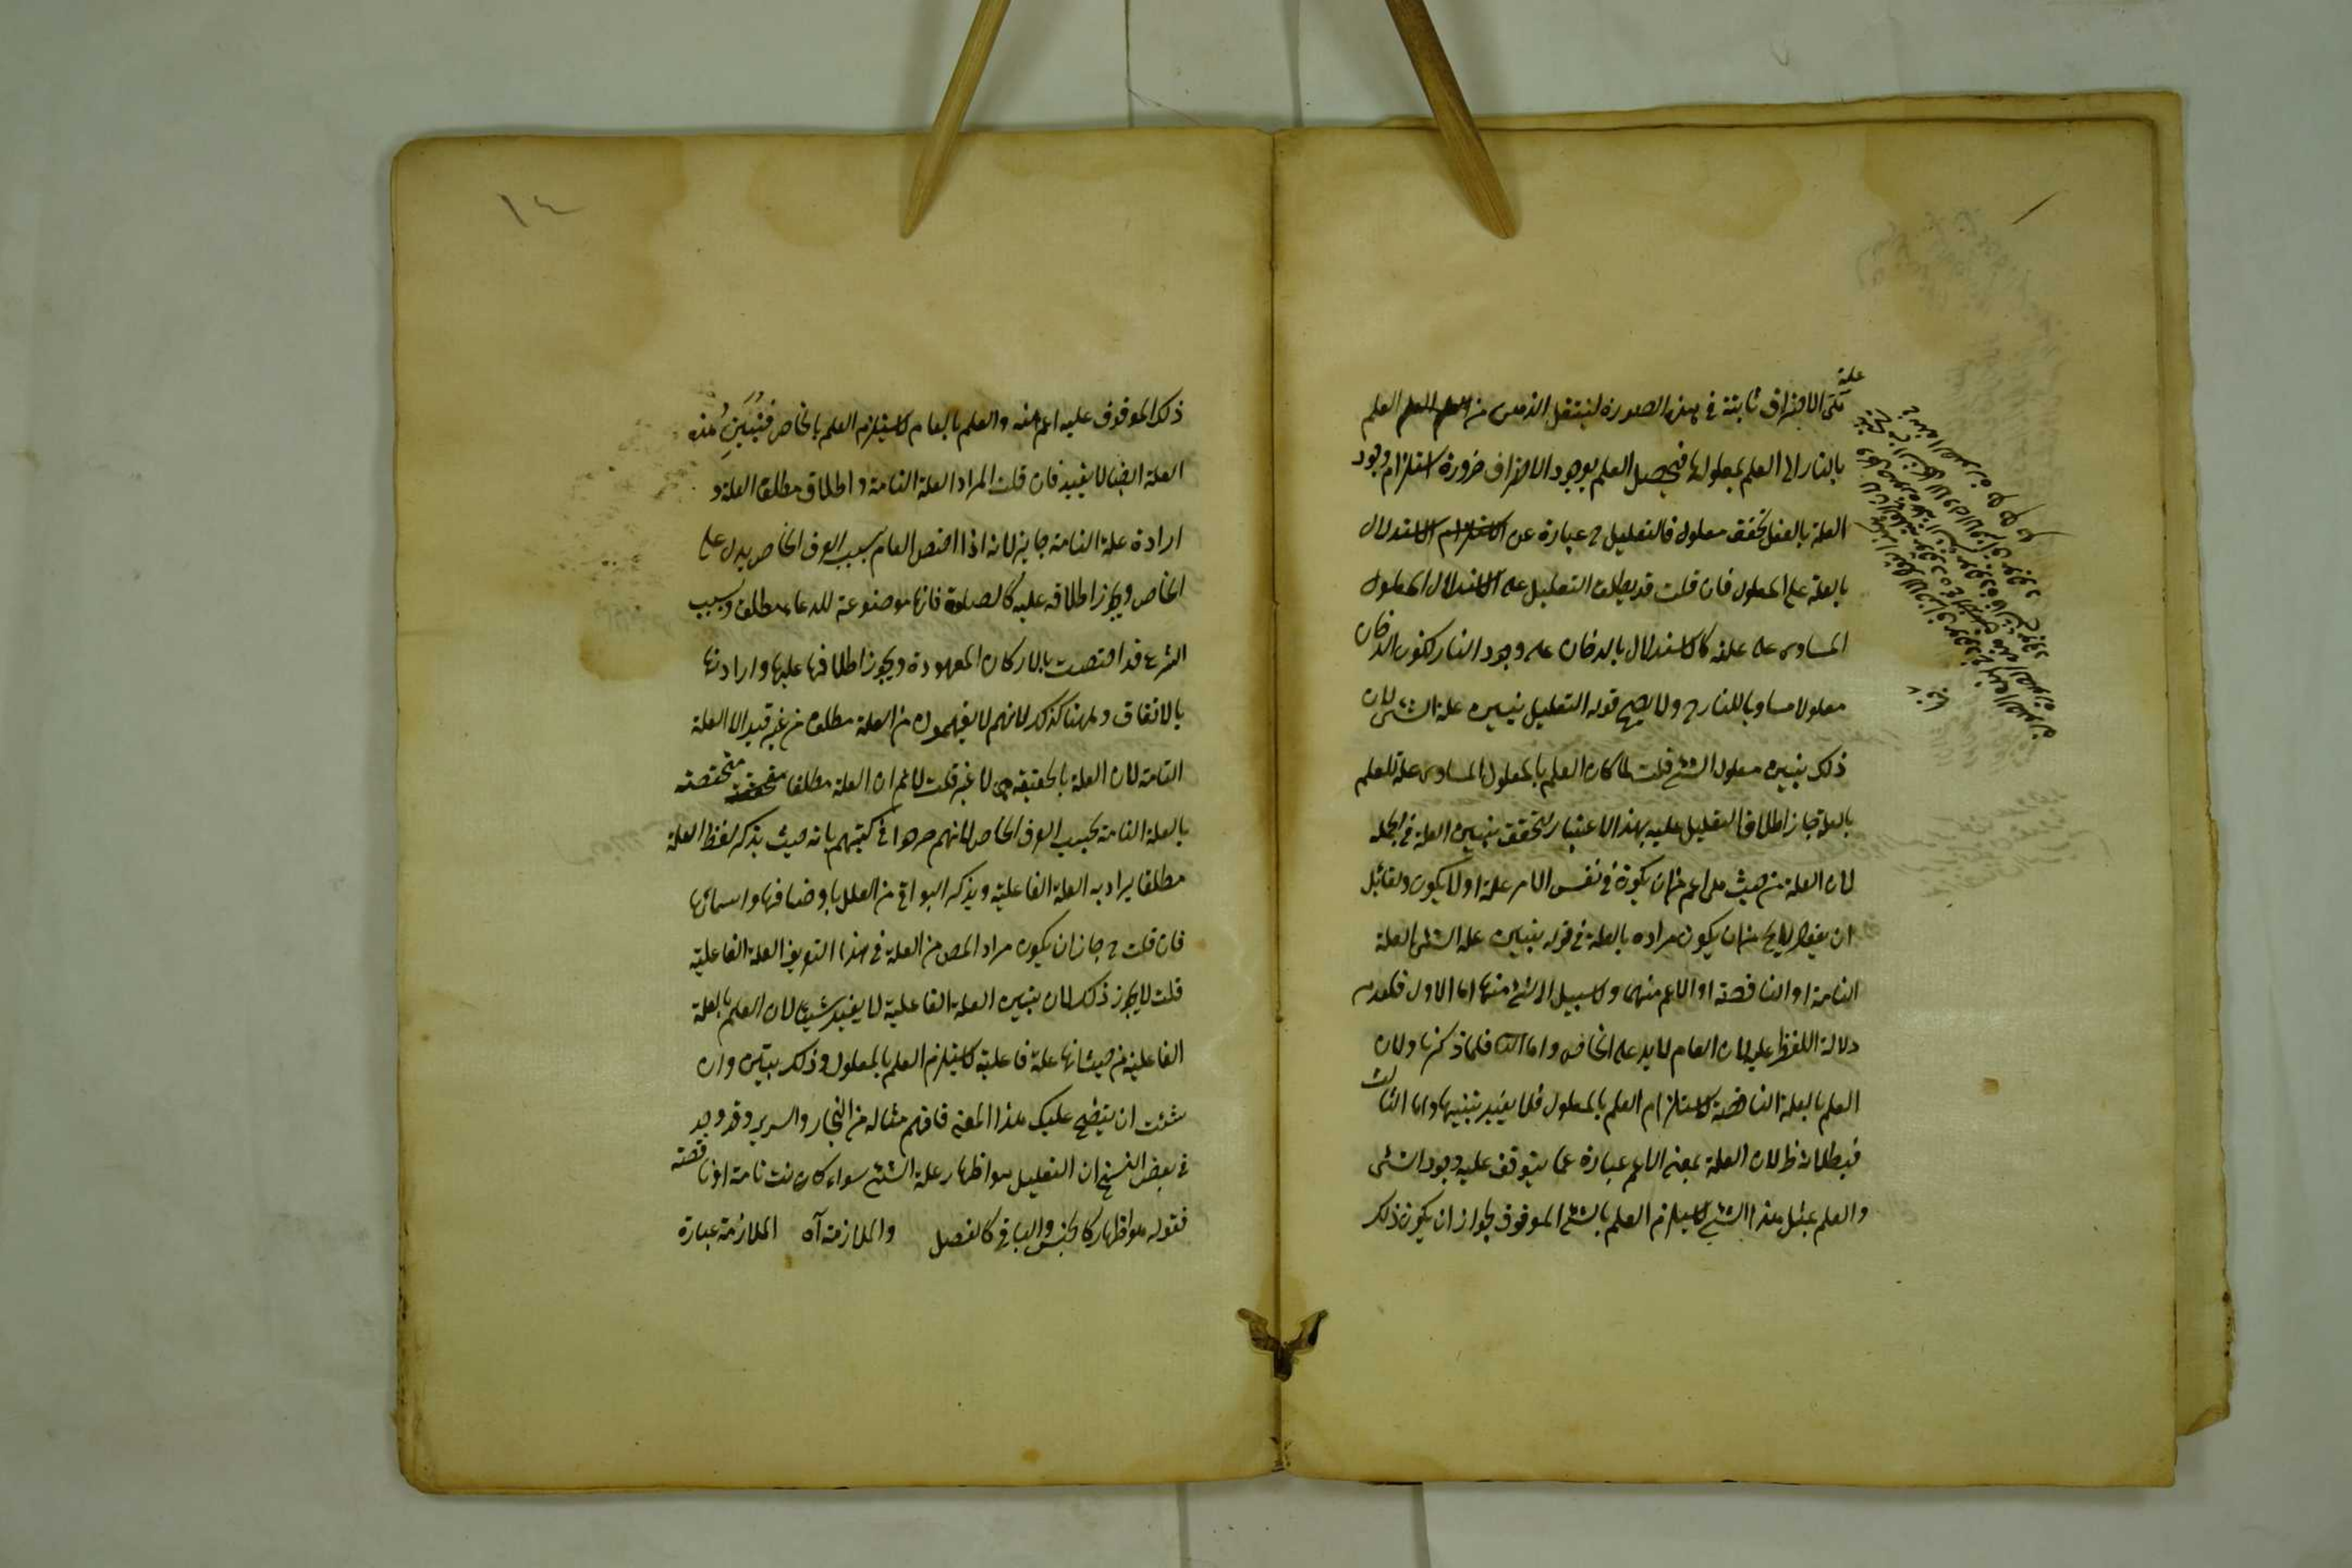 علة
متى الاحتراق ثابتة في هذه الصورة لينتقل الذهن من العلم
بالنار الى العلم بمعلولها فيحصل العلم بوجود الاحتراق ضرورة استلزام وجود
العلة بالفعل تحقق معلوله فالتعليل ح عبارة عن الاستدلال
بالعلة على المعلول فان قلت قد يطلق التعليل على الاستدلال المعلول
المساوى على علته كالاستدلال بالدخان على وجود النار لكون الدخان
معلولا مساويا للنار ح ولا يصح قوله التعليل تبيين علة الشئ لان
ذلك تبيين معلول الشئ قلت لما كان العلم بالمعلول المساوى علة للعلم
بالعلة جاز اطلاق التعليل عليه بهذا الاعتبار لتحقق تبيين العلة في الجملة
لان العلة من حيث هى اعم من ان يكون في نفس الامر علة او لا يكون ولقائل
ان يقول لا يخ من ان يكون مراده بالعلة في قوله تبيين علة الشئ العلة
التامة او الناقصة او الاعم منهما ولا سبيل الى شئ منها اما الاول فلعدم
دلالة اللفظ عليه لان العام لا يدل على الخاص واما الثا فلما ذكرنا ولان
العلم بالعلة الناقصة لا يستلزم العلم بالمعلول فلا يفيد تبيينها واما الثالث
فبطلانه ظ لان العلة بمعنى الاعم عبارة عما يتوقف عليه وجود الشئ
والعلم بمثل هذا الشئ لا يستلزم العلم بالشئ الموقوف لجواز ان يكون ذلك
١٤
ذلك الموقوف عليه اعم منه والعلم بالعام لا يستلزم العلم بالخاص فتبيين هذه
العلة ايضا لا يفيد فان قلت المراد العلة التامة و اطلاق مطلق العلة و
ارادة علة التامة جايز لانه اذا اختص العام بسبب العرف الخاص يدل على
الخاص ويجوز اطلاقه عليه كالصلوة فانها موضوعة للدعاء مطلق وبسبب
الشرع قد اختصت بالاركان المعهودة ويجوز اطلاقها عليها وارادتها
بالاتفاق وههنا كذلك لانهم لا يفهمون من العلة مطلق من غير قيد الا العلة
التامة لان العلة بالحقيقة هى لا غير قلت لا نم ان العلة مطلقا مختصة
بالعلة التامة بحسب العرف الخاص لانهم صرحوا في كتبهم بانه حيث يذكر لفظ العلة
مطلقا يراد به العلة الفاعلية ويذكر البواقى من العلل باوصافها واسمائها
فان قلت ح جاز ان يكون مراد المص من العلة في هذا التعريف العلة الفاعلية
قلت لا يجوز ذلك لان تبيين العلة الفاعلية لا يفيد شيئا لان العلم بالعلة
الفاعلية من حيث انها علة فاعلية لا يستلزم العلم بالمعلول وذلك بين وان
شئت ان يتضح عليك هذا المعنى فافهم مثاله من النجار والسرير وقد وجد
في بعض النسخ ان التعليل هو اظهار علة الشئ سواء كانت تامة او ناقصة
فقوله هو اظهار كالجنس والباقى كالفصل والملازمة آه الملازمة عبارة